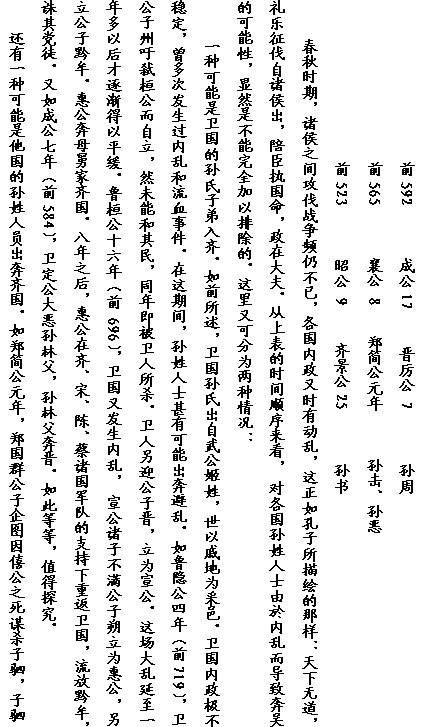 前 592 成公17 晋厉公 7 孙周
前 565 襄公 8 郑简公元年 孙击、孙恶
前 523 昭公 9 齐景公 25 孙书
春秋时期，诸侯之间攻伐战争频仍不已，各国内政又时有动乱，这正如孔子所描绘的那样：天下无道
礼乐征伐自诸侯出，陪臣执国命，政在大夫。从上表的时间顺序来看， 对各国孙姓人士由於内乱而导致奔吴
的可能性，显然是不能完全加以排除的。这里又可分为两种情况：
一种可能是卫国的孙氏子弟入齐。如前所述，卫国孙氏出自武公姬姓，世以戚地为采邑。卫国内政极不
稳定，曾多次发生过内乱和流血事件。在这期间，孙姓人士甚有可能出奔避乱。如鲁隐公四年（前719），卫
公子州吁弑桓公而自立，然未能和其民，同年即被卫人所杀。卫人另迎公子晋，立为宣公。这场大乱延至一
年多以后才逐渐得以平缓。鲁桓公十六年（前696），卫国又发生内乱， 宣公诸子不满公子朔立为惠公，另
立公子黔牟。惠公奔母舅家齐国。八年之后，惠公在齐、宋、陈、蔡诸国军队的支持下重返卫国，流放黔牟，
诛其党徒。又如成公七年（前584），卫定公大恶孙林父，孙林父奔晋。如此等等，值得探究。
还有一种可能是他国的孙姓人员出奔齐国。如郑简公元年，郑国群公子企图因僖公之死谋杀子驷，子驷